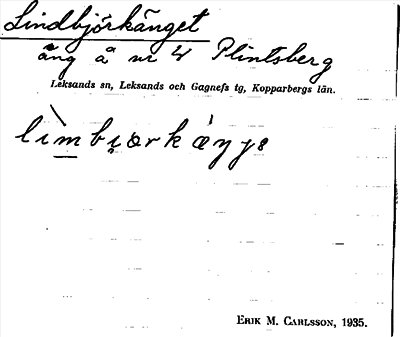 Lindbjörkänget
äng å nr 4 Plintsberg
Leksands sn, Leksands och Gagnefs tg, Kopparbergs län.
ERIK M. CARLSSON, 1935.